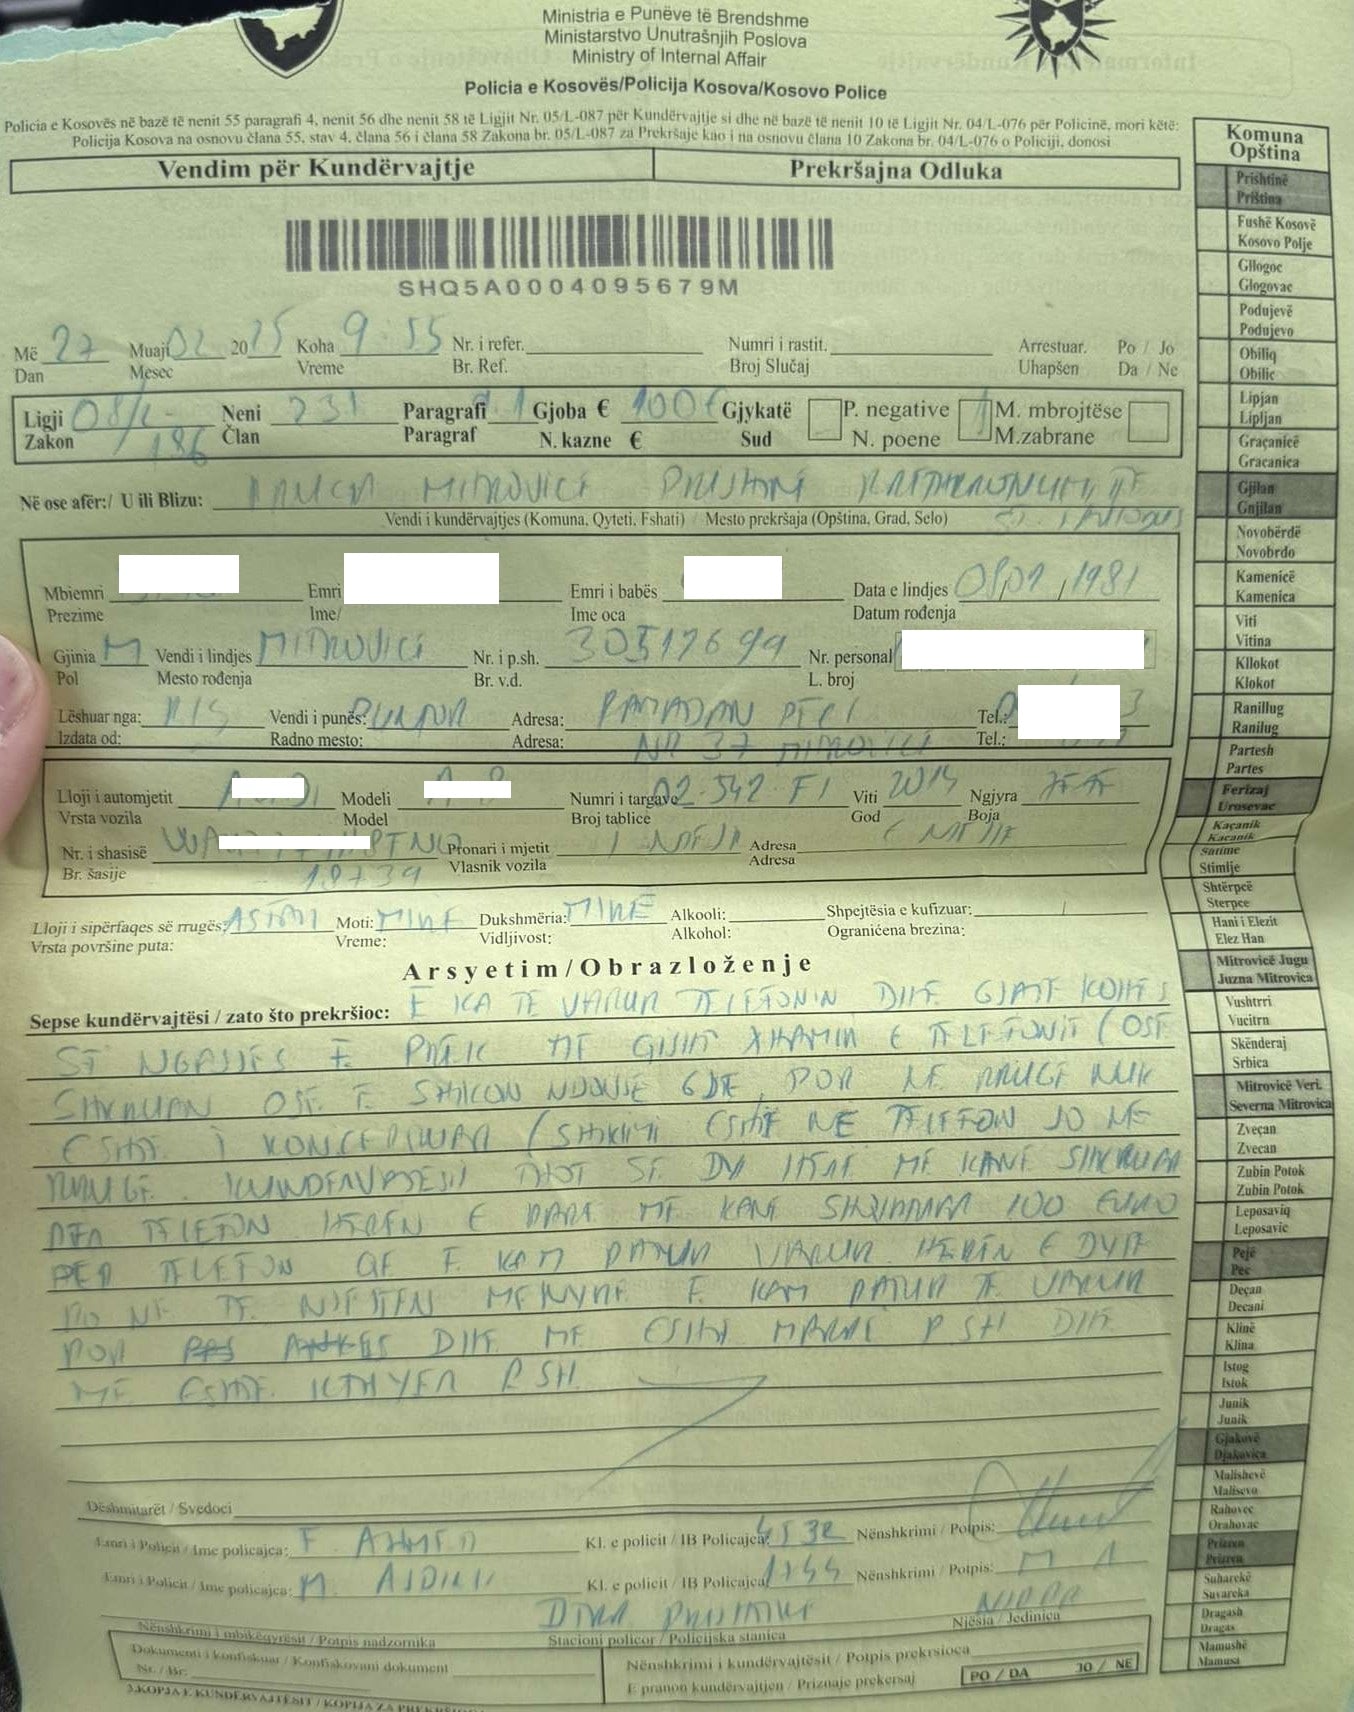 Ministria e Punëve të Brendshme
Ministarstvo Unutrašnjih Poslova
Ministry of Internal Affair
Policia e Kosovës/Policija Kosova/Kosovo Police
Policia e Kosovës në bazë të nenit 55 paragrafi 4, nenit 56 dhe nenit 58 të Ligjit Nr. 05/L-087 për Kundërvajtje si dhe në bazë të nenit 10 të Ligjit Nr. 04/L-076 për Policinë, mori këtë:
Policija Kosova na osnovu člana 55, stav 4, člana 56 i člana 58 Zakona br. 05/L-087 za Prekršaje kao i na osnovu člana 10 Zakona br. 04/L-076 o Policiji, donosi
Vendim për Kundërvajtje Prekršajna Odluka
SHQ5A0004095679M
Më 27 Muaji 02 2025 Koha 9:55 Nr. i refer. Numri i rastit. Arrestuar. Po / Jo
Dan Mesec Vreme Br. Ref. Broj Slučaj Uhapšen Da / Ne
Ligji 08/L-186 Neni 231 Paragrafi 1 Gjoba € 100€ Gjykatë P. negative M. mbrojtëse
Zakon Član Paragraf N. kazne € Sud N. poene M.zabrane
Në ose afër:/ U ili Blizu: MITROVICE PRISHTINË
Vendi i kundërvajtjes (Komuna, Qyteti, Fshati) / Mesto prekršaja (Opština, Grad, Selo)
Mbiemri Emri Emri i babës Data e lindjes 1981
Prezime Ime/ Ime oca Datum rođenja
Gjinia M Vendi i lindjes MITROVICË Nr. i p.sh. Nr. personal
Pol Mesto rođenja Br. v.d. L. broj
Lëshuar nga: Vendi i punës: Adresa: Tel.:
Izdata od: Radno mesto: Adresa: NR 37 MITROVICË Tel.:
Lloji i automjetit Modeli Numri i targave 02-542-FI Viti Ngjyra
Vrsta vozila Model Broj tablice God Boja
Nr. i shasisë Pronari i mjetit I NJEJTI Adresa E NJEJTE
Br. šasije Vlasnik vozila Adresa
Lloji i sipërfaqes së rrugës: ASFALT Moti: MIRE Dukshmëria: MIRË Alkooli: Shpejtësia e kufizuar: /
Vrsta površine puta: Vreme: Vidljivost: Alkohol: Ograničena brezina:
Arsyetim/Obrazloženje
Sepse kundërvajtësi / zato što prekršioc: E KA TE VARUR TELEFONIN DHE GJATE KOHES
SE NGASJES E PREK ME GISHT XHAMIN E TELEFONIT (OSE
SHKRUAN OSE E SHIKON NDONJE GJE, POR NE RRUGE NUK
ESHTE I KONCENTRUAR (SHIKIMI ESHTE NE TELEFON JO NE
RRUGE. KUNDERVAJTESI THOT SE DY HERE ME KANE SHKRUAR
PER TELEFON HEREN E PARE ME KANE SHQIPTUAR 100 EURO
PER TELEFON QE E KAM PATUR VARUR HEREN E DYTE
PO NE TE NJEJTEN MENYRE E KAM PATUR TE VARUR
POR DHE ME ESHTE MARRE P SH DHE
ME ESHTE KTHYER P SH.
Dëshmitarët / Svedoci
Emri i Policit / Ime policajca: F. AHMETI Kl. e policit / IB Policajca: Nënshkrimi / Potpis:
Emri i Policit / Ime policajca: M. Kl. e policit / IB Policajca Nënshkrimi / Potpis:
PRISHTINE
Nënshkrimi i mbikëqyrësit / Potpis nadzornika Stacioni policor / Policijska stanica Njësia / Jedinica
Dokumenti i konfiskuar / Konfiskovani dokument Nënshkrimi i kundërvajtësit / Potpis prekrsioca
Nr. / Br: E pranon kundërvajtjen / Priznaje prekersaj PO / DA JO / NE
3.KOPJA E KUNDËRVAJTËSIT / KOPIJA ZA
Komuna
Opština
Prishtinë
Priština
Fushë Kosovë
Kosovo Polje
Gllogoc
Glogovac
Podujevë
Podujevo
Obiliq
Obilic
Lipjan
Lipljan
Graçanicë
Gracanica
Gjilan
Gnjilan
Novobërdë
Novobrdo
Kamenicë
Kamenica
Viti
Vitina
Kllokot
Klokot
Ranillug
Ranilug
Partesh
Partes
Ferizaj
Urosevac
Kaçanik
Kacanik
Stimlje
Shtërpcë
Sterpce
Hani i Elezit
Elez Han
Mitrovicë Jugu
Juzna Mitrovica
Vushtrri
Vucitrn
Skënderaj
Srbica
Mitrovicë Veri.
Severna Mitrovica
Zveçan
Zvecan
Zubin Potok
Zubin Potok
Leposaviq
Leposavic
Pejë
Pec
Deçan
Decani
Klinë
Klina
Istog
Istok
Junik
Junik
Gjakovë
Djakovica
Malishevë
Malisevo
Rahovec
Orahovac
Prizren
Prizren
Suharekë
Suvareka
Dragash
Dragas
Mamushë
Mamusa